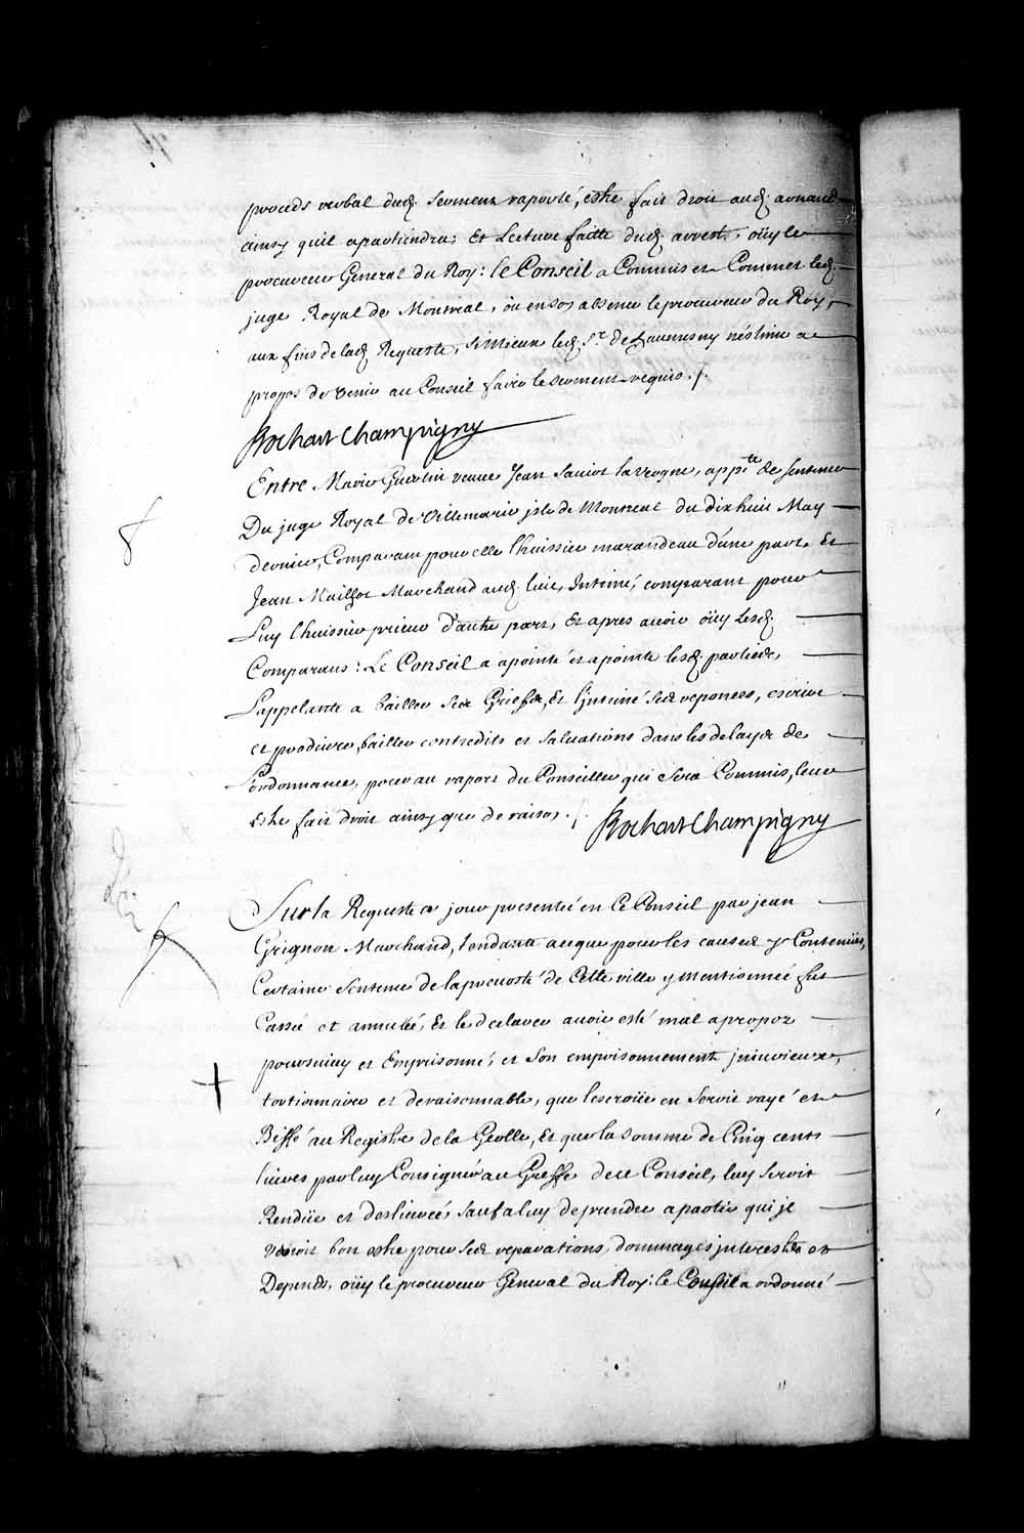 proceds verbal dud. serment raporté, estre fait droit aud. arnaud
ainsy quil apartiendra; Et Lecture faitte dud. arrest, oüy le
procureur General du Roy: le Conseil a Commis et Commet led.
juge Royal de Monreal, où en son absence le procureur du Roy,
aux fins de lad. Requeste, si Mieux led. Sr. de n'éstime a
propos de venir au Conseil faire le serment requis ./.
Bochart Champigny
Entre Marie Guertin veuve Jean Saviot Lavergne, appte. de sentence
Du juge Royal de Villemarie jsle de Monreal du dix huit May
dernier, Comparant pour elle l'huissier marandeau d'une part, Et
Jean Maillot Marchand aud. lieu, Intimé, comparant pour
Luy l'huissier prieur d'autre part, Et apres avoir oüy Lesd.
Comparans: Le Conseil a apointé et apointe lesd. partiees,
L'appelante a bailler ses Griefs, Et l'Intimé ses reponces, escrire
et produire, bailler contredits et salvations dans les delays de
l'ordonnance, pour au raport du Conseiller qui sera Commis, leur
Estre fait droit ainsy que de raison ./.
Bochart Champigny
8
Sur la Requeste ce jour presentée en Ce Conseil par jean
Grignon Marchand, tendante aceque pour les causes y Contenües,
Certaine sentence de la prevosté de Cette ville y mentionnée fut
Cassée et annullée, Et le declarer avoir esté mal apropos
poursuivy et Emprisonné, et son emprisonnement injurieux,
tortionnaire et deraisonnable, que lescroüe en seroit rayé et
Biffé au Registre de la Geolle, Et que la somme de Cinq cents
livres par luy Consignée au Greffe de ce Conseil, luy seroit
Rendüe et deslivreé, sauf a luy de prendre a partie qui je
verroit bon estre pour ses reparations, dommages jnterests et
Depends, oüy le procureur General du Roy: le Conseil a ordonné